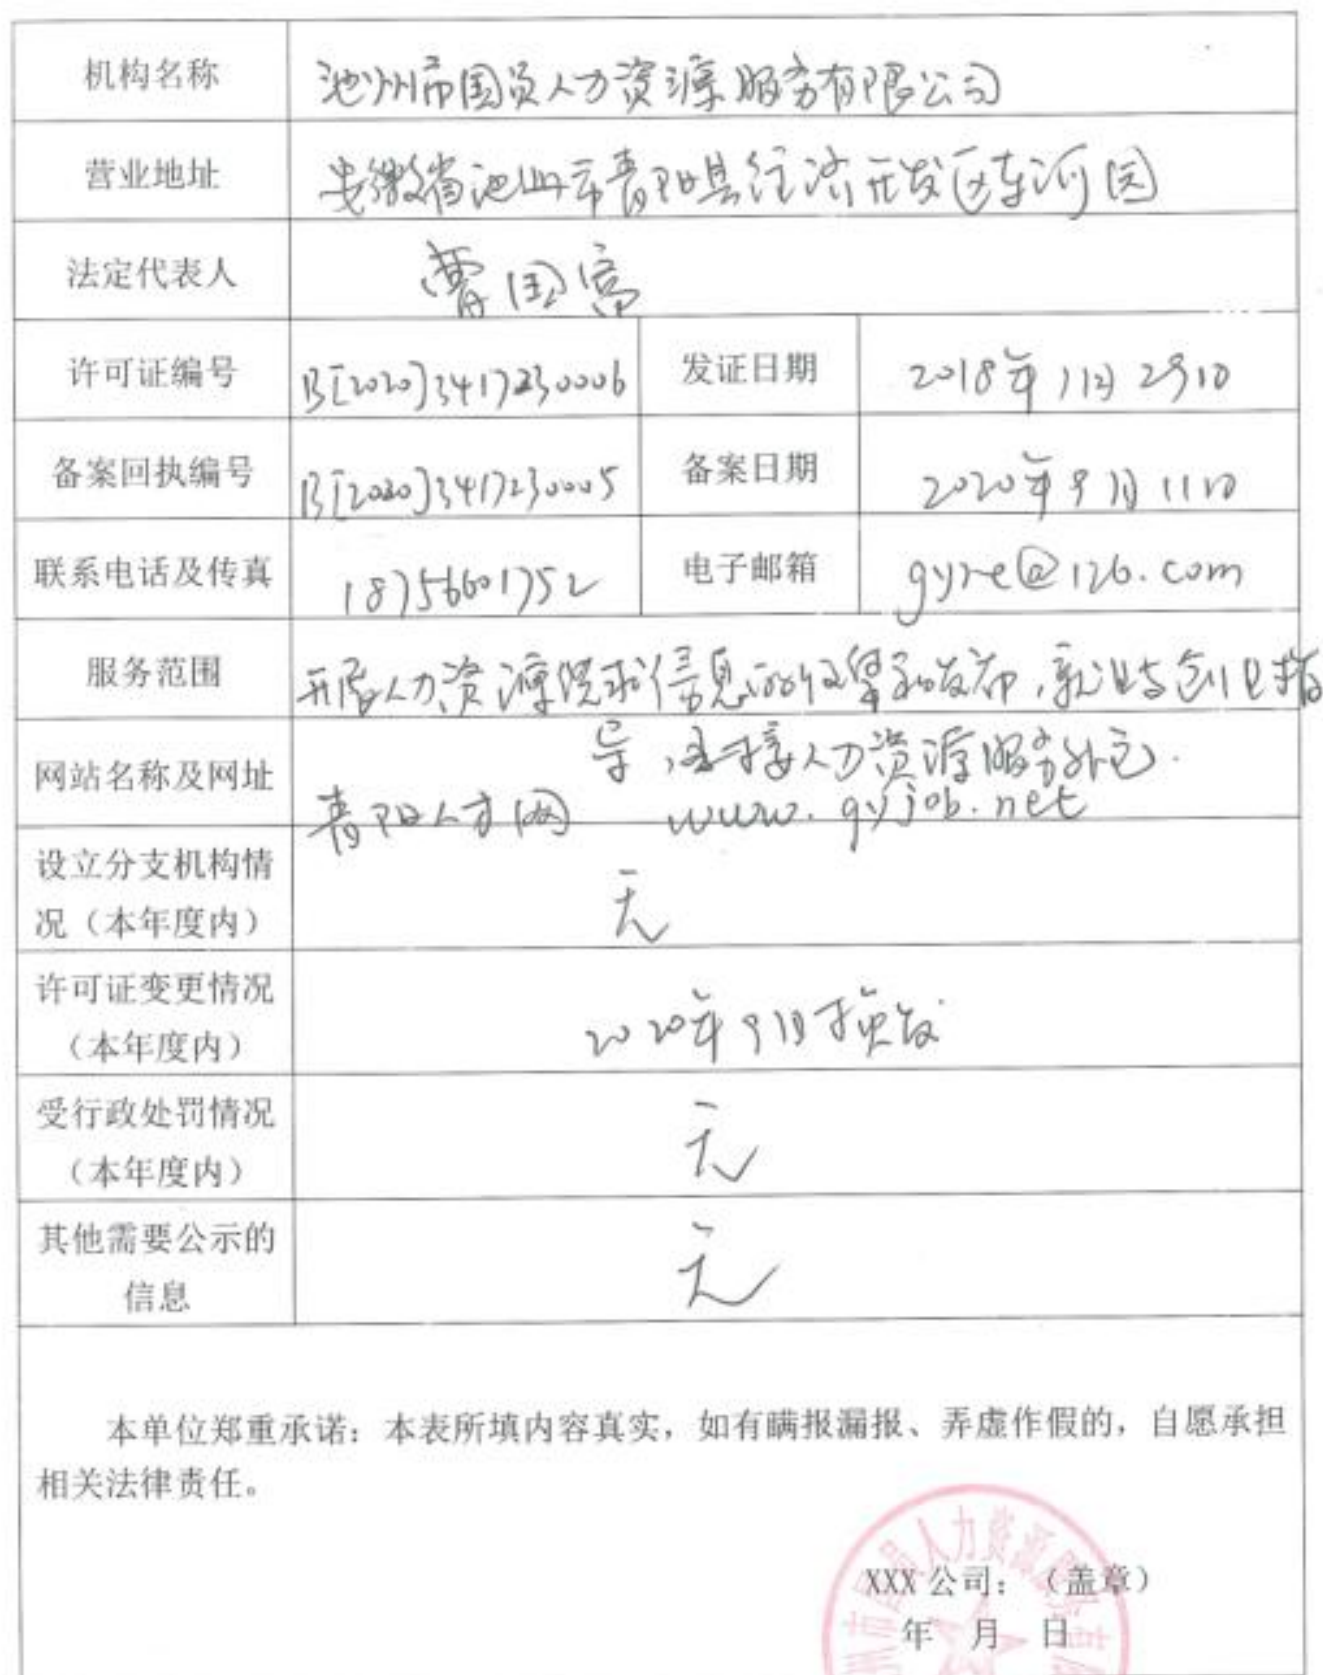 机构名称 池州市国员人力资源服务有限公司
营业地址 安徽省池州市青阳县经济开发区东河园
法定代表人 曹国富
许可证编号 B[2020]3417230006 发证日期 2018年11月29日
备案回执编号 B[2020]3417230005 备案日期 2020年9月11日
联系电话及传真 18756601752 电子邮箱 gyre@126.com
服务范围 开展人力资源供求信息的收集和发布，就业与创业指
导，承接人力资源服务外包.
网站名称及网址 青阳人才网 www.gyjob.net
设立分支机构情
况（本年度内） 无
许可证变更情况
（本年度内） 2020年9月换发
受行政处罚情况
（本年度内） 无
其他需要公示的
信息 无
本单位郑重承诺：本表所填内容真实，如有瞒报漏报、弄虚作假的，自愿承担
相关法律责任。
XXX 公司：（盖章）
年 月 日
州市国员人力资源服务有